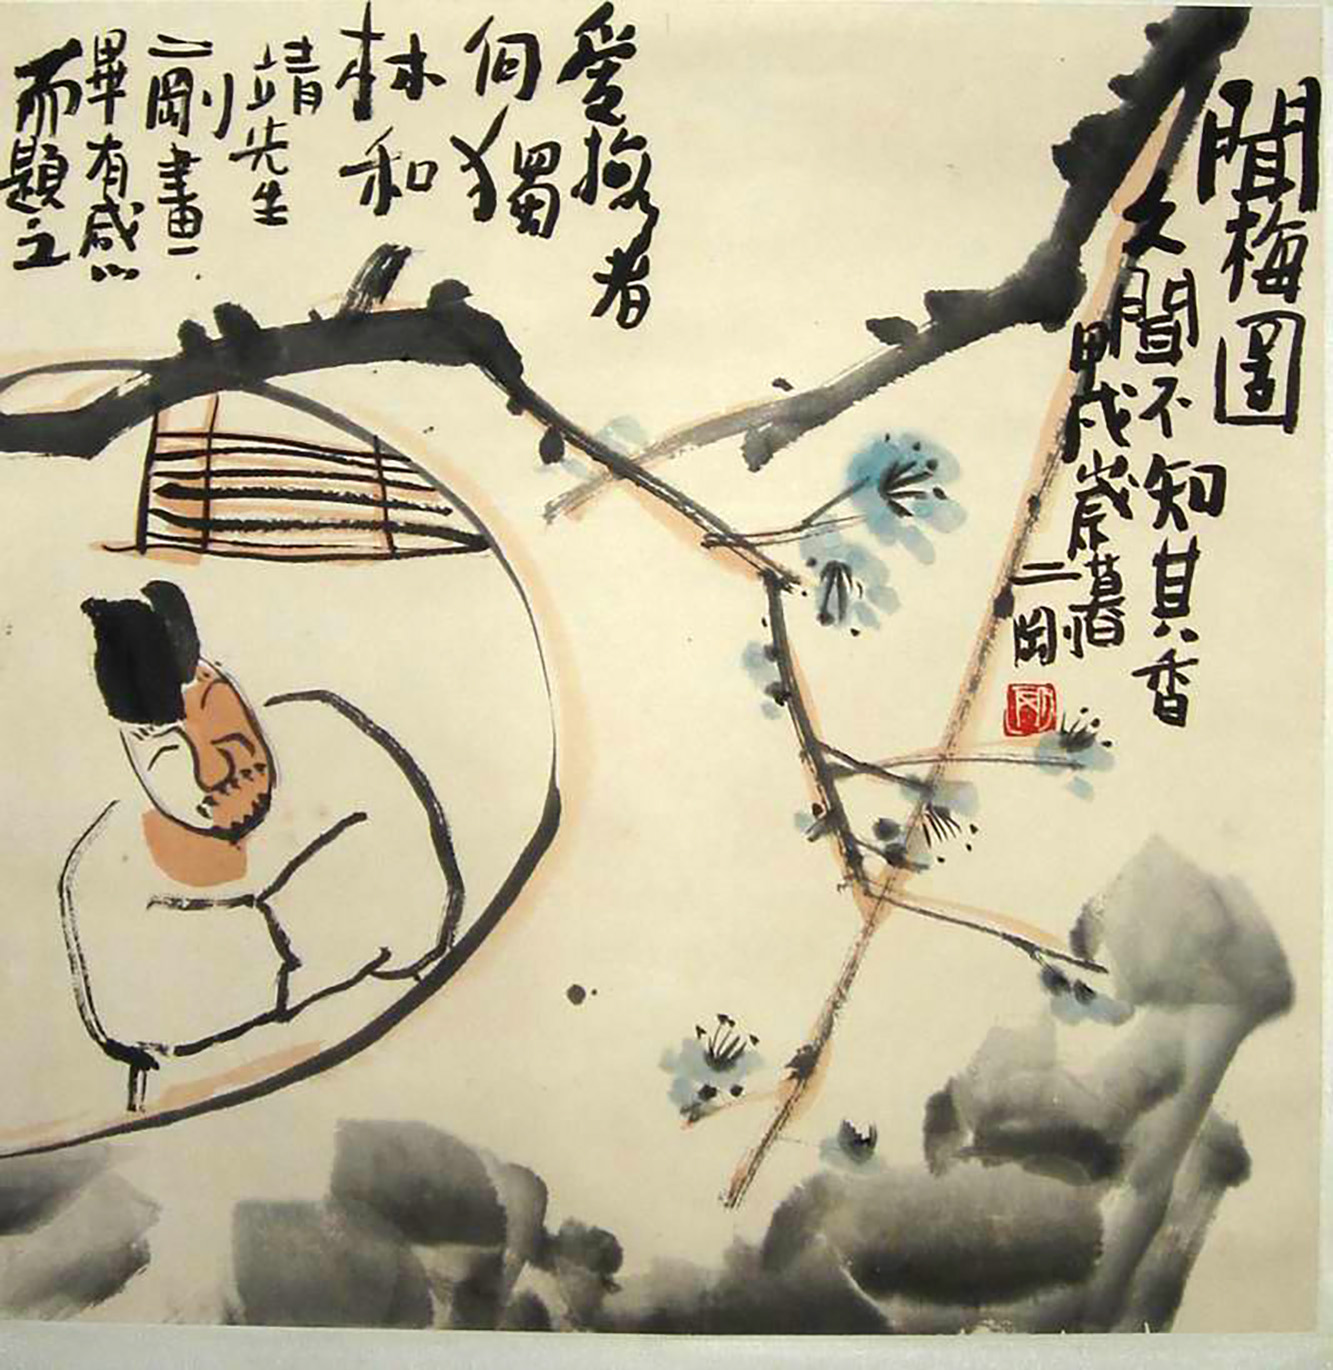 聞梅圖
久聞不知其香
甲戌歲暮
二剛
愛梅者
何獨
林和
靖先生
二剛畫
畢有感
而題之